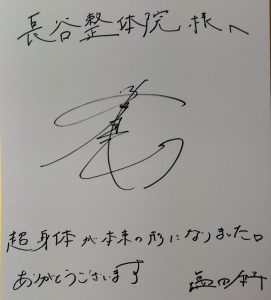 長谷整体院 様へ
超身体が本来の形になりました。
ありがとうございます